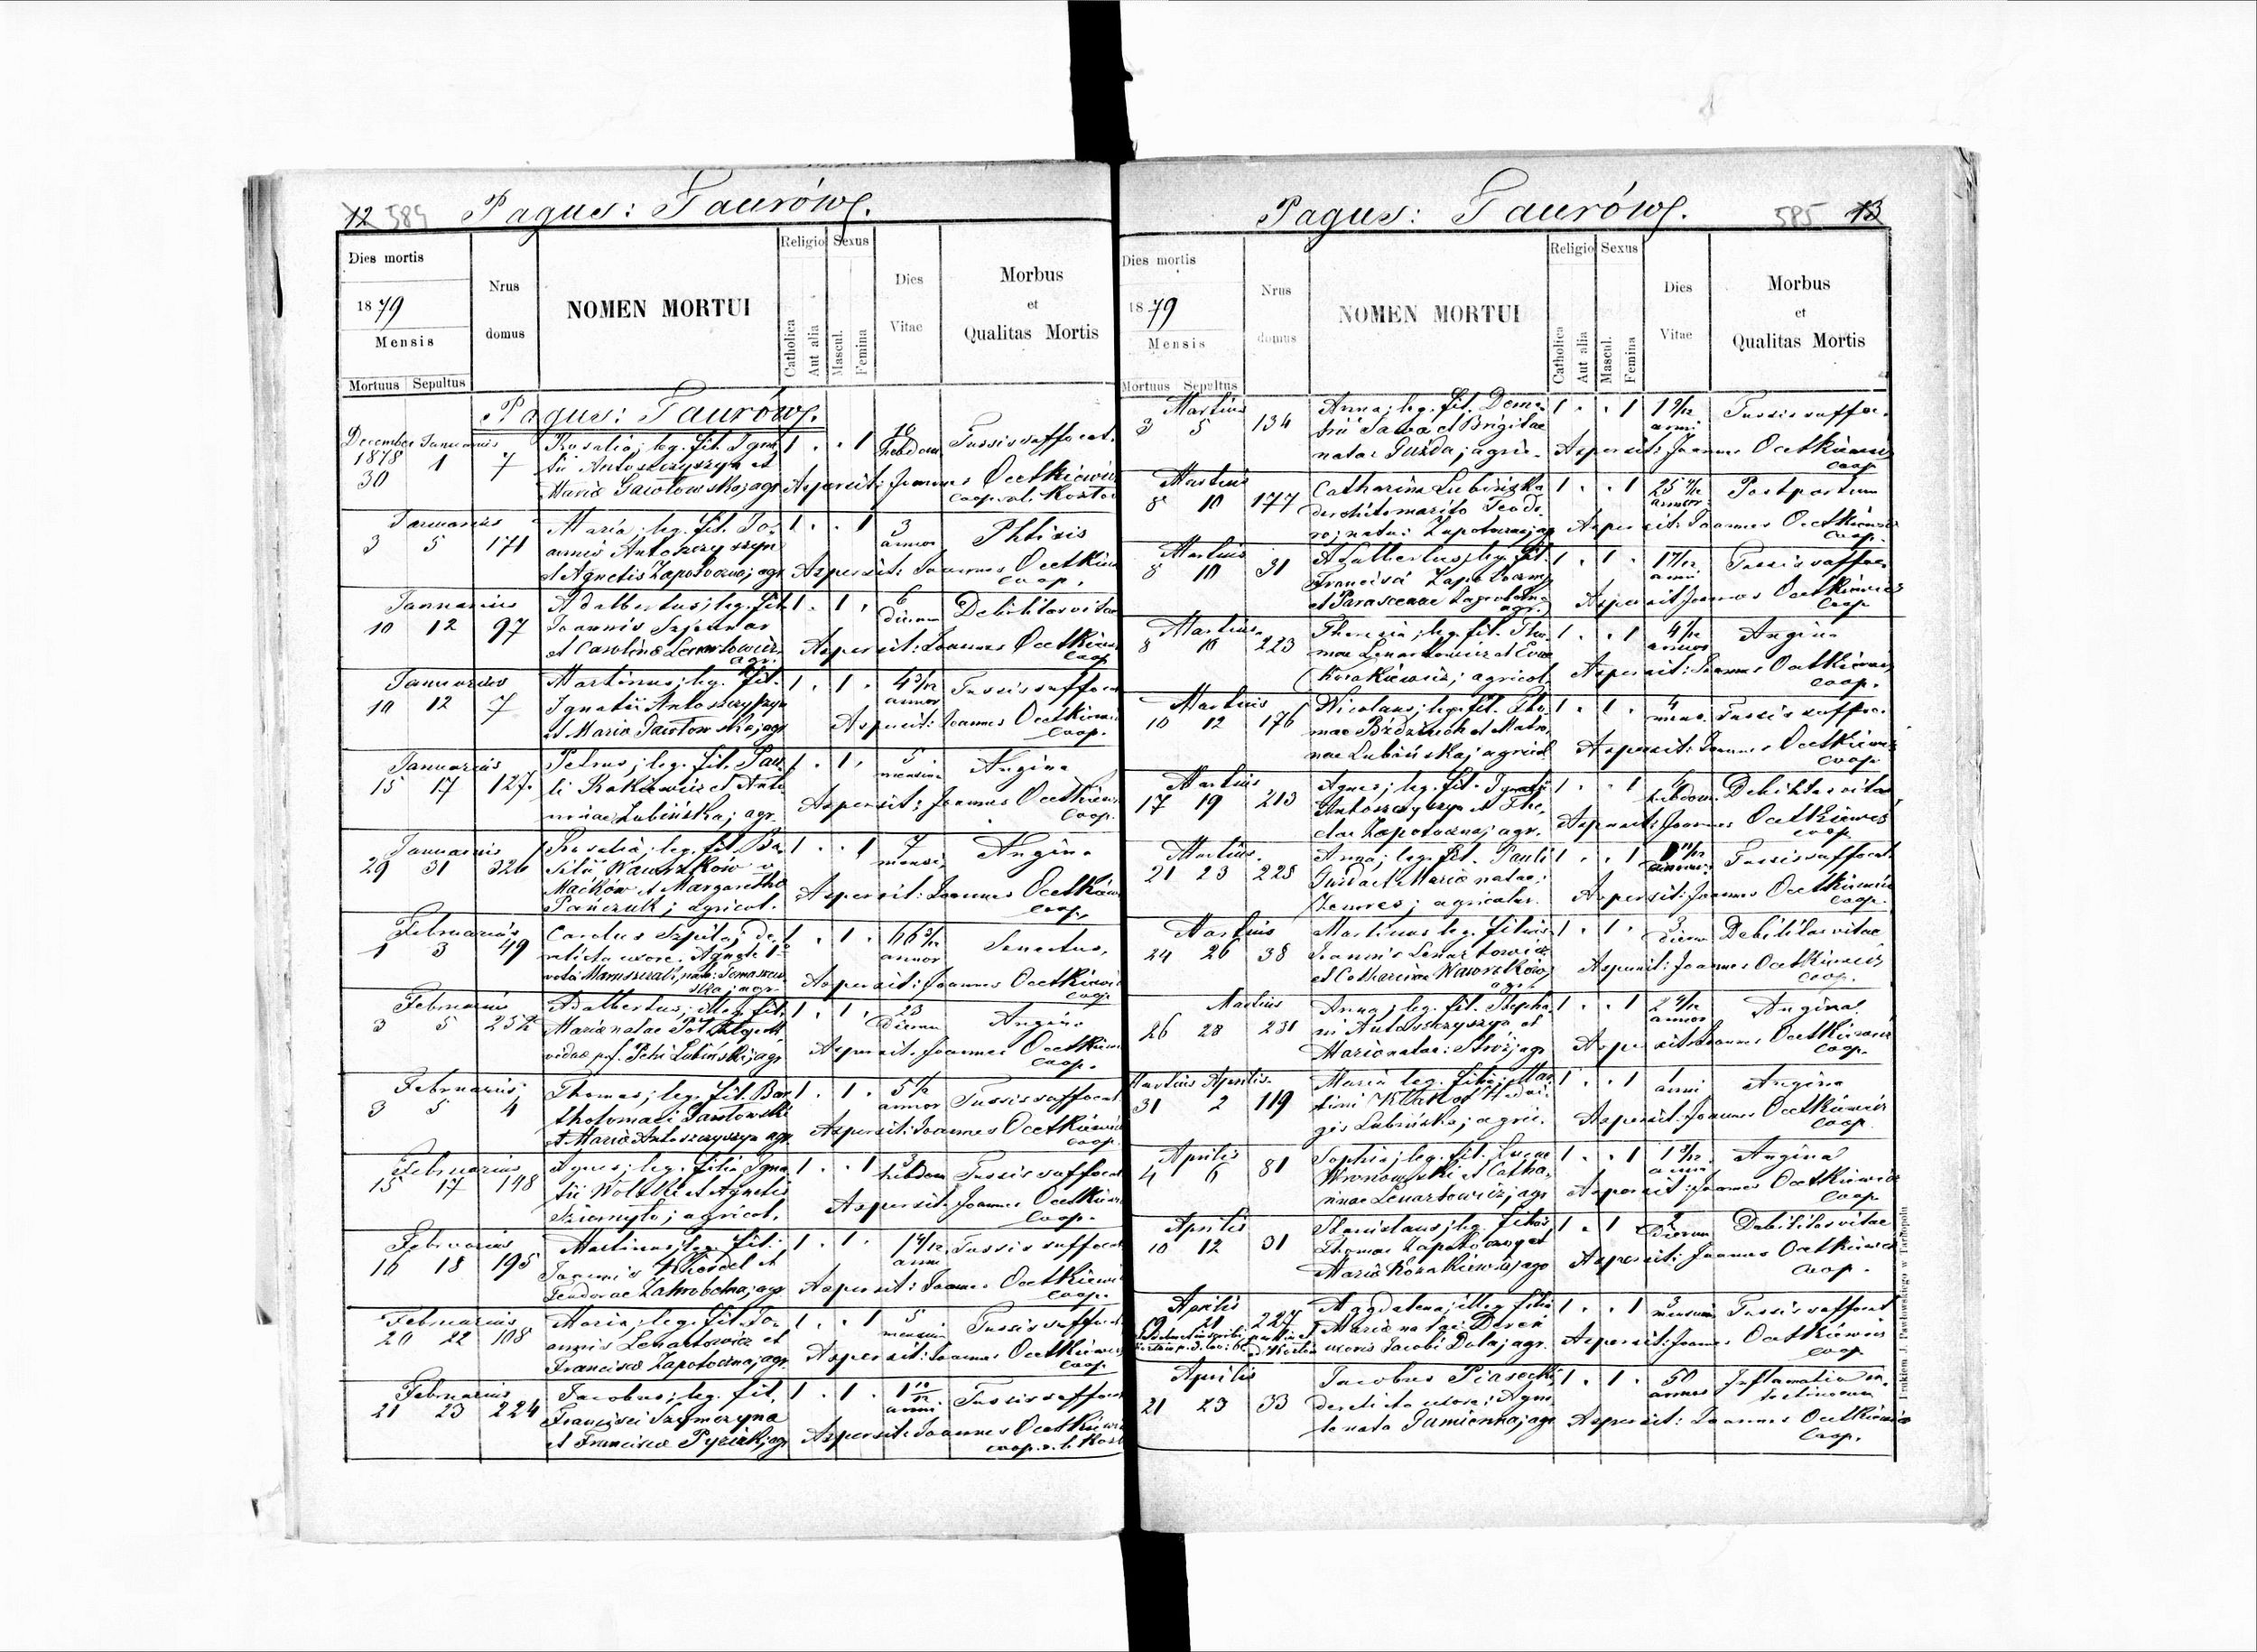 12 584 Pagus: Taurów.
Dies mortis
1879
Mensis
Mortuus Sepultus
Nrus
domus
NOMEN MORTUI
Religio
Catholica
Aut alia
Sexus
Mascul.
Femina
Dies
Vitae
Morbus
et
Qualitas Mortis
Pagus: Taurów.
December Januarius Rosalia; leg. fil. Igna 1 . . 1 Hebdom Tussis suffocat.
1878 1 7 tii Antoszczyszyn et
30 Maria Gawłowska; agr Aspersit: Joannes Ocetkiewicz
coop.
Januarius Maria; leg. fil. Jo- 1 . . 1 3 Phtisis
3 5 171 annis Antoszczyszyn annor
et Agnetis Zapotoczna; agr Aspersit: Joannes Ocetkiew
coop.
Januarius Adalbertus; leg. fil. 1 . 1 . 6 Debilitas vitae
10 12 97 Joannis dierum
et Carolina Lenartowicz Aspersit: Joannes Ocetkiew
agr. coop
Januarius Martinus; leg. fil. 1 . 1 . 4 3/12 Tussis suffoca
10 12 7 Ignatii Antoszczyszyn annor
et Maria Gawłowska; agr Aspersit: Joannes Ocetkiewi
coop.
Januarius Petrus; leg. fil. Pau- 1 . 1 . 5 Angina
15 17 127. li et Anto mensium
ninae Lubińska; agr. Aspersit: Joannes Ocetkiew
coop.
Januarius Rosalia; leg. fil. Ba- 1 . . 1 7 Angina
29 31 326 silii Wawrzków v mensi
Maćków et Margaretha Aspersit: Joannes Ocetkiew
Pańczuk; agricol. coop.
Februarius Carolus Szpila; de- 1 . 1 . 66 3/12 Senectus,
1 3 49 relicta uxore: Agnete 1º annor
voto Maruszczak, nata: Tomaszew Aspersit: Joannes Ocetkiewi
ska; agr. coop
Februarius Adalbertus; illeg. fil. 1 . 1 . 23 Angina
3 5 252 Maria natae dierum
viduae p. f. Petri Lubiński; agr Aspersit: Joannes Ocetkiew
coop.
Februarius Thomas; leg. fil. Bar 1 . 1 . 5 Tussis suffocat
3 5 4 tholomaei Gawłowski annor
et Maria Antoszczyszyn agr. Aspersit: Joannes Ocetkiewicz
coop.
Februarius Agnes; leg. filia Igna 1 . . 1 3 Tussis suffocat
15 17 148 tii Wolski et Agnetis hebdom
agricol. Aspersit: Joannes Ocetkiew
coop.
Februarius Martinus; leg. fil. 1 . 1 . 1 4/12 Tussis suffocat
16 18 195 Joannis et anni
Teodorae agr Aspersit: Joannes Ocetkiewi
coop.
Februarius Maria; leg. fil. Jo- 1 . . 1 5 Tussis suffocat
20 22 108 annis Lenartowicz et mensium
Francisca Zapotoczna; agr. Aspersit: Joannes Ocetkiewicz
coop.
Februarius Jacobus; leg. fil. 1 . 1 . 1 10/12 Tussis suffocat
21 23 224 Francisci Szymczyna anni
et Francisca agr Aspersit: Joannes Ocetkiewicz
coop.
Pagus: Taurów. 585 13
Dies mortis
1879
Mensis
Mortuus Sepultus
Nrus
domus
NOMEN MORTUI
Religio
Catholica
Aut alia
Sexus
Mascul.
Femina
Dies
Vitae
Morbus
et
Qualitas Mortis
Martius Anna; leg. fil. Deme- 1 . . 1 1 9/12 Tussis suffoc.
3 5 134 trii Sawa et Brigitae anni
natae Guzda; agric. Aspersit: Joannes Ocetkiewicz
coop
Martius Catharina Lubińska 1 . . 1 25 Post partum
8 10 177 derelicto marito Teodo- annor
ro; nata: Zapotoczna; agr Aspersit: Joannes Ocetkiewicz
coop.
Martius Adalbertus; leg. fil. 1 . 1 . 1 Tussis suffoc.
8 10 31 Francisci Zapotoczny anni
et Parascevae Aspersit: Joannes Ocetkiewicz
agr. coop
Martius Theresia; leg. fil. Tho- 1 . . 1 4 1/12 Angina
8 10 223 mae Lenartowicz et Evae annor
agricol. Aspersit: Joannes Ocetkiewicz
coop.
Martius Nicolaus; leg. fil. Tho- 1 . 1 . 4 Tussis suffoc.
10 12 176 mae et Matro- mens.
nae Lubińska; agricol Aspersit: Joannes Ocetkiewicz
coop
Martius Agnes; leg. fil. Ignatii 1 . . 1 4 Debilitas vitae
17 19 213 Antoszczyszyn et The- hebdom.
clae Zapotoczna; agr. Aspersit: Joannes Ocetkiewicz
coop
Martius. Anna; leg. fil. Pauli 1 . . 1 11/12 Tussis suffocat.
21 23 225 Guzda et Maria natae:
agricolar. Aspersit: Joannes Ocetkiewicz
coop.
Martius Martinus leg. filius 1 . 1 . 3 Debilitas vitae
24 26 38 Joannis Lenartowicz dierum
et Catharina Wawrzków; Aspersit: Joannes Ocetkiewicz
agr. coop.
Martius Anna; leg. fil. Stepha- 1 . . 1 2 Angina
26 28 231 ni Antoszczyszyn et annor
Maria natae: agr Aspersit: Joannes Ocetkiewicz
coop.
Martius Aprilis Maria leg. filia; Mar- 1 . . 1 1 Angina
31 2 119 tini et Hedvi- anni
gis Lubińska; agric. Aspersit: Joannes Ocetkiewicz
coop
Aprilis Sophia; leg. fil. Lucae 1 . . 1 1 Angina
4 6 81 Wronowski et Catha- anni
rinae Lenartowicz; agr Aspersit: Joannes Ocetkiewicz
coop
Aprilis Stanislaus; leg. filius 1 . 1 . 2 Debilitas vitae
10 12 31 Thomae Zapotoczny et dierum
Maria agr Aspersit: Joannes Ocetkiewicz
coop.
Aprilis Magdalena; illeg. filia 1 . . 1 3 Tussis suffocat
19 21 227 Maria natae: mensium
uxoris Jacobi agr. Aspersit: Joannes Ocetkiewicz
coop
Aprilis Jacobus Piasecki; 1 . 1 . 50 Inflamatio in-
21 23 33 derelicta uxore: Agne- annor testinorum
te nata agr Aspersit: Joannes Ocetkiewicz
coop.
Drukiem J. Pawłowskiego w Tarnopolu